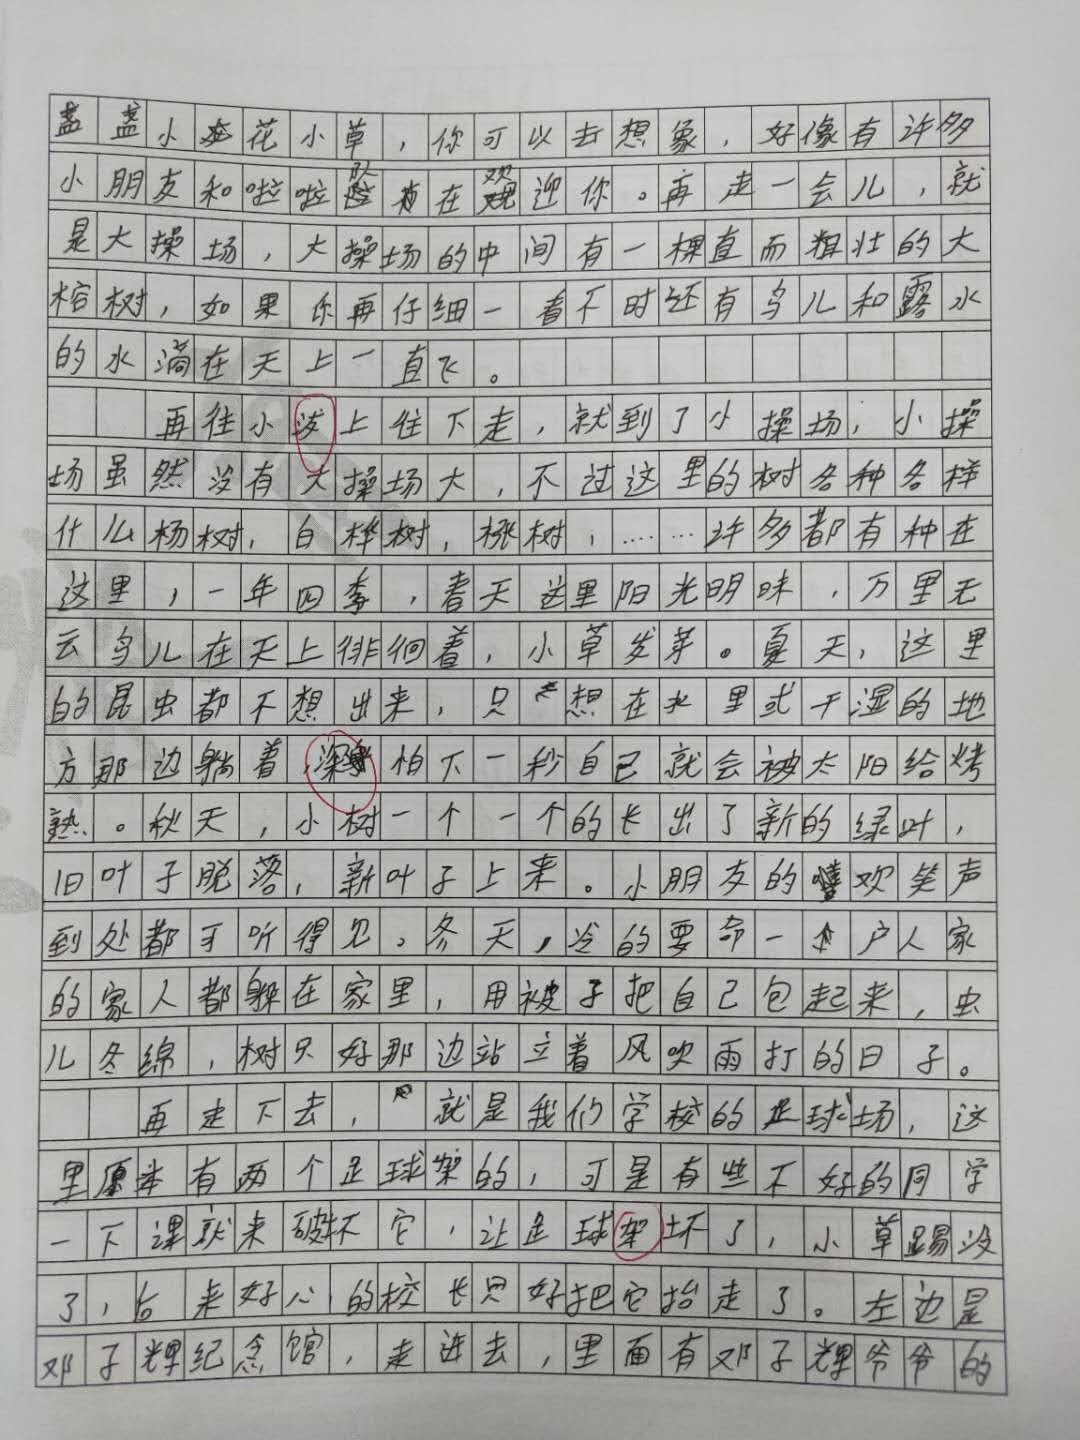 盏盏小花小草，你可以去想象，好像有许多
小朋友和啦啦队在欢迎你。再走一会儿，就
是大操场，大操场的中间有一棵直而粗壮的大
榕树，如果你再仔细一看不时还有鸟儿和露水
的水滴在天上一直飞。
再往小上往下走，就到了小操场，小操
场虽然没有大操场大，不过这里的树各种各样
什么杨树，白桦树，树，……许多都有种在
这里，一年四季，春天这里阳光明味，万里无
云鸟儿在天上徘徊着，小草发芽。夏天，这里
的昆虫都不想出来，只想在水里或干湿的地
方那边躺着深怕下一秒自己就会被太阳给烤
熟。秋天，小树一个一个的长出了新的绿叶，
旧叶子脱落，新叶子上来。小朋友的欢笑声
到处都可听得见。冬天，冷的要命一个户人家
的家人都躲在家里，用被子把自己包起来，虫
儿冬绵，树只好那边站立着风吹雨打的日子。
再走下去，就是我们学校的足球场，这
里原本有两个足球架的，可是有些不好的同学
一下课就来破坏它，让足球架坏了，小草踢没
了，后来好心的校长只好把它抬走了。左边是
邓子辉纪念馆，走进去，里面有邓子辉爷爷的